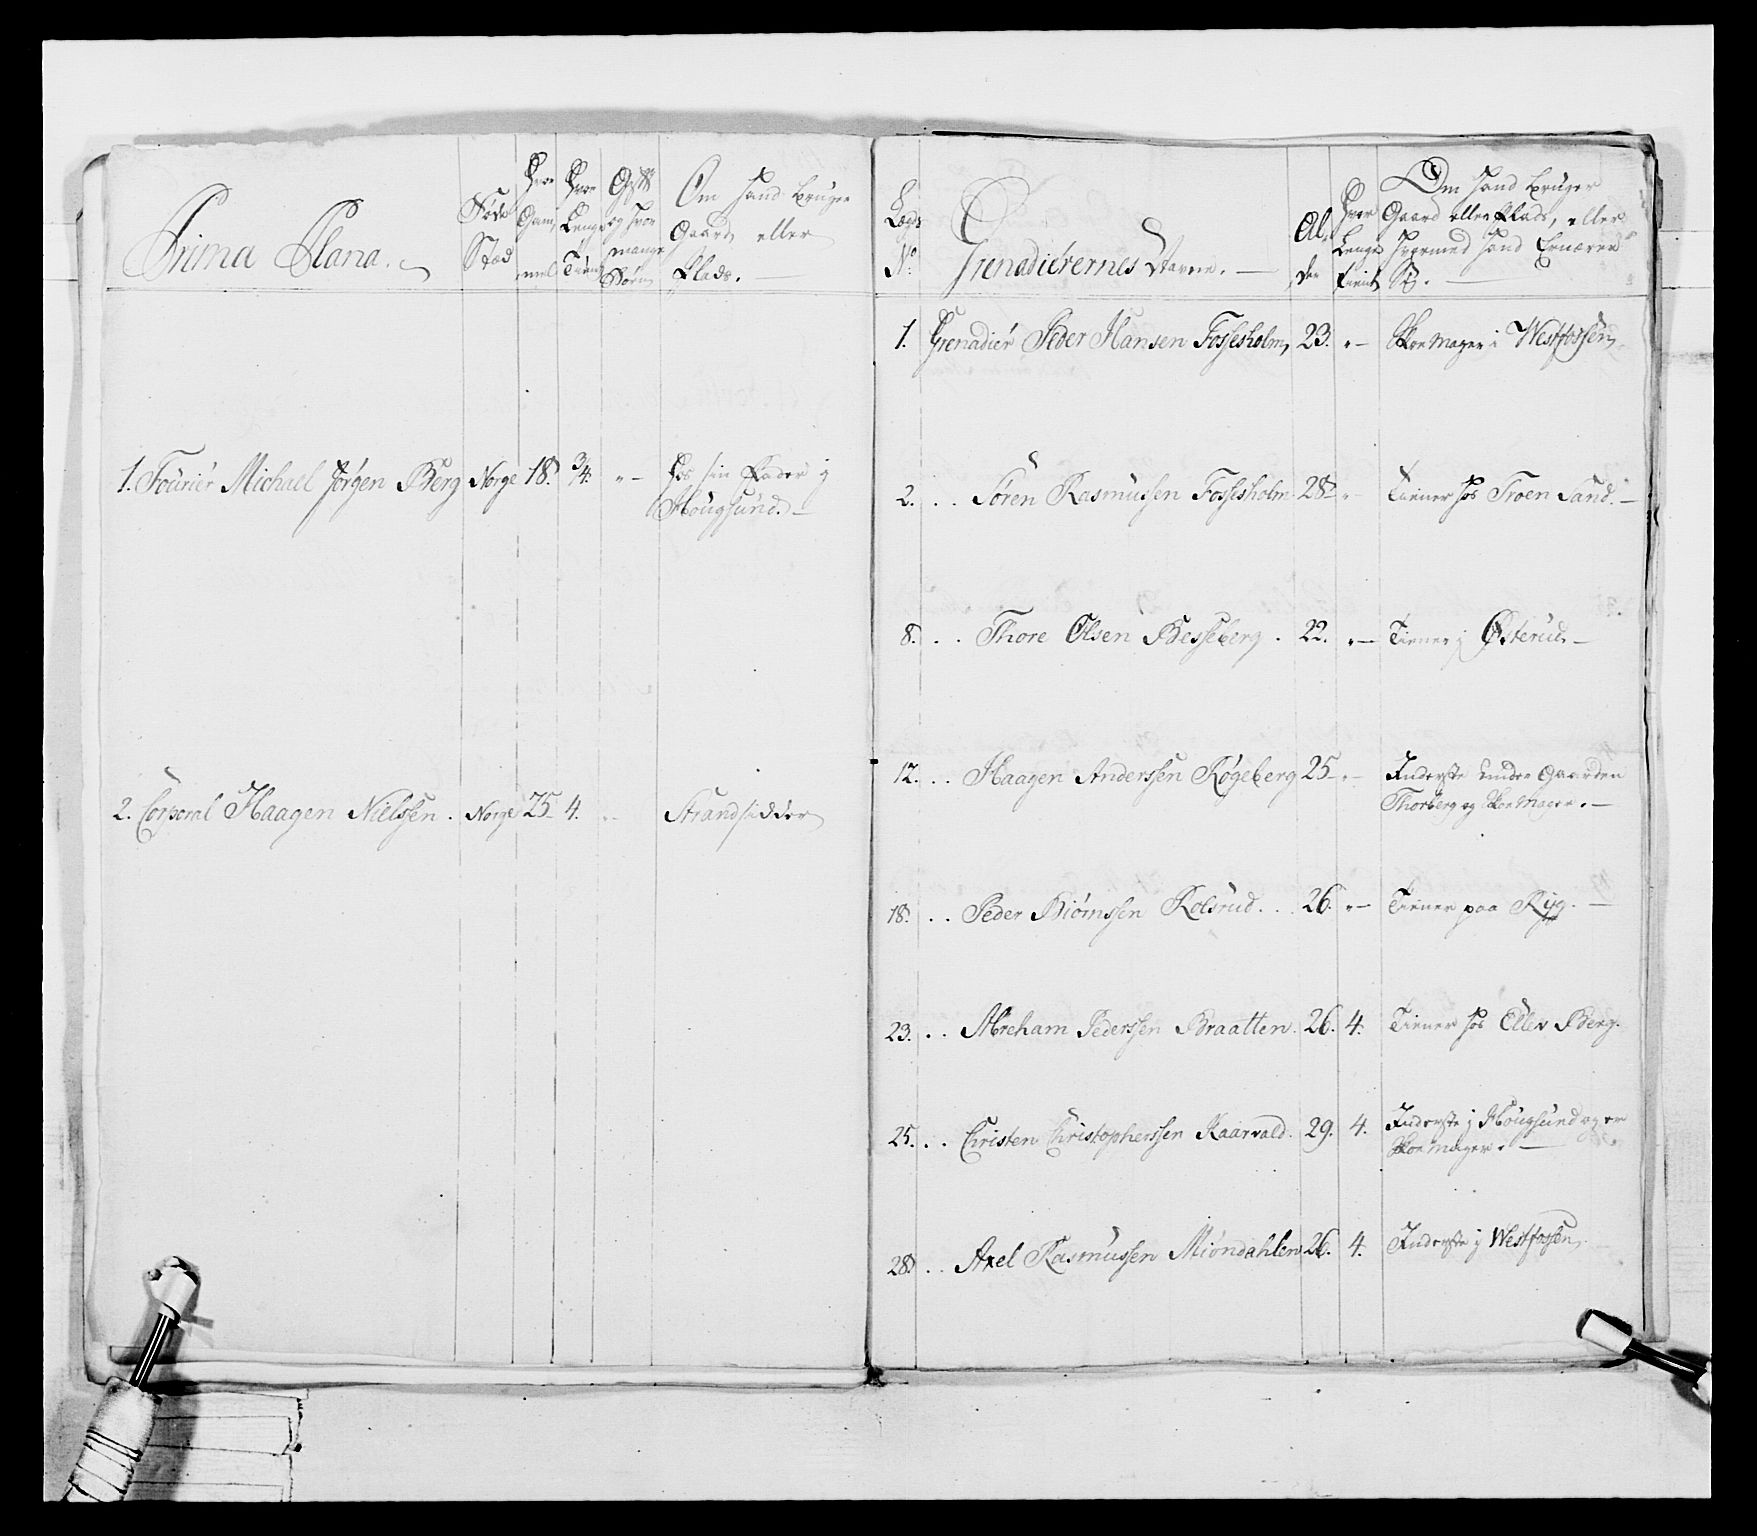 Prima Plana.
Føde Stæd
Hvor Gammel
Hvor Lenge Tient
Gift og Hvor mange Børn
Om Hand bruger
Gaard eller
Plads.
1. Fouriér Michael Jørgen Berg Norge 18. 3/4. "— hos sin Fader i
Hougsund.—
2. Corporal Haagen Nielssen. Norge 25 4. "— Strandsidder
Lægds No.
Grenadierernes Navne.—
Alder
Hvor Lenge tient
Om Hand bruger
Gaard eller Plads, eller
hvormed Hand Ernærer
Sig.—
1. Grenadiér Peder Hansen Fossesholm, 23. "— Skoemager i Westfossen,
2. . . Søren Rasmussen Fossesholm 28. "— Tiener hos Troen Sand.—
8. . . Thore Olsen Besseberg. 22. "— Tiener i Østerud.—
12. . . Haagen Anderssen Røgeberg 25 "— Inderste under Gaarden
Thorberg og Skoemager.—
18. . . Peder Biørnssen Kolsrud. . . 26. "— Tiener paa Ryg.—
23. . . Abreham Pederssen Braatten. 26. 4. Tiener hos Ellev Berg.
25. . . Christen Christopherssen Kaarvald. 29. 4. Inderste i Hougsund og er
Skoemager.—
28. . . Axel Rasmussen Miøndahlen 26. 4. Inderste i Westfossen,